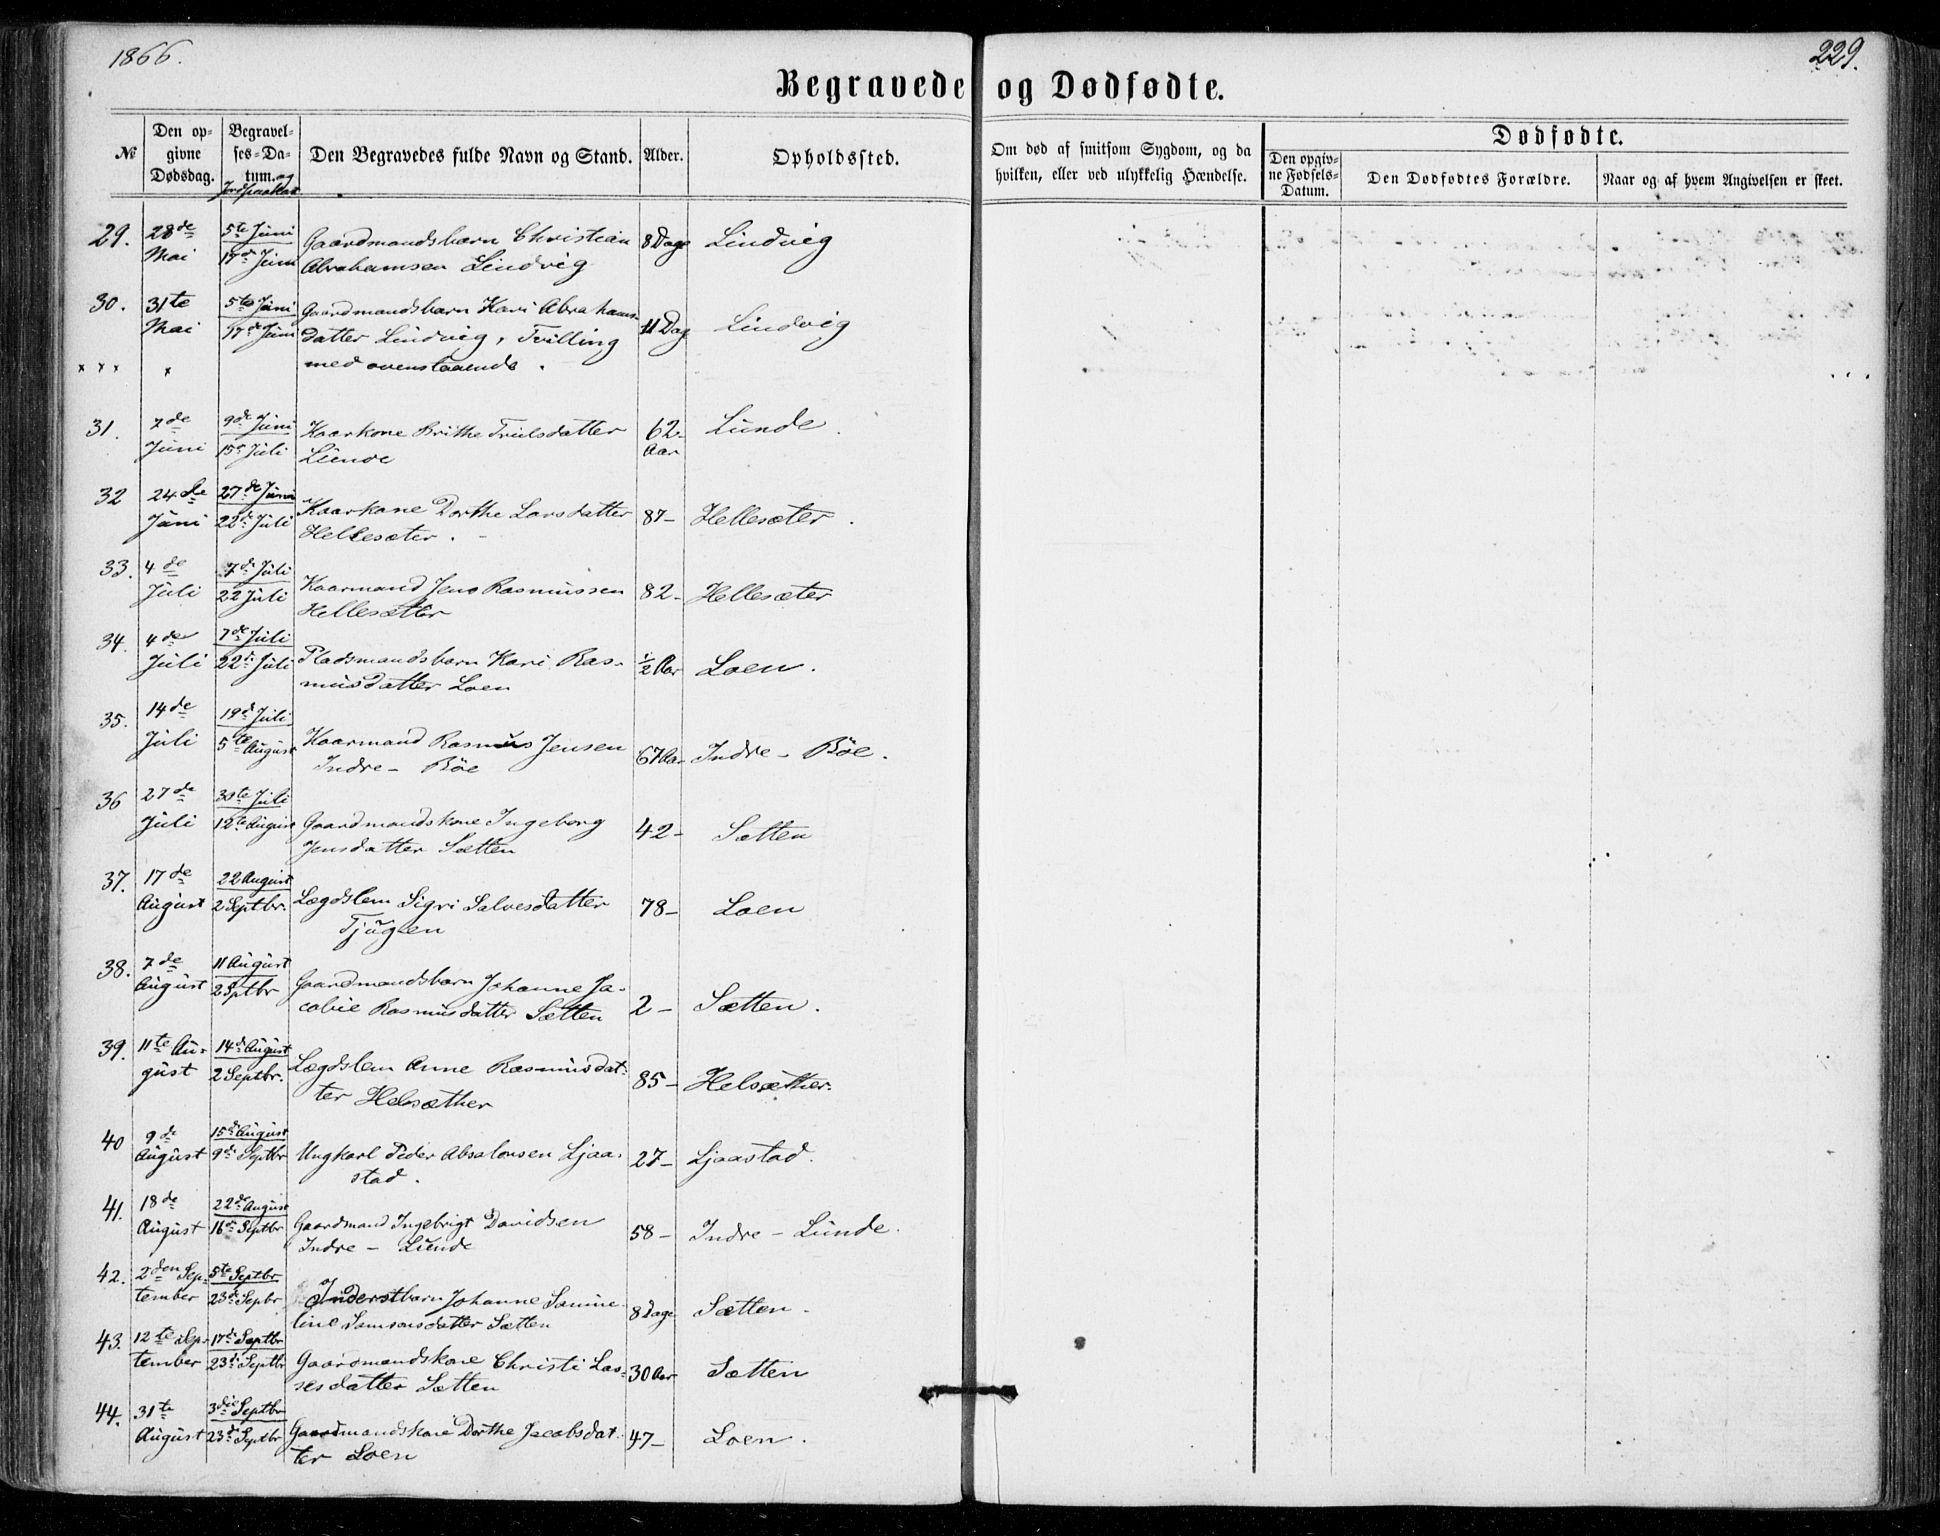 1866.
229.
Begravede og Dødfødte.
№
Den opgivne Dødsdag.
Begravelses-Datum. og Jordpaakast
Den Begravedes fulde Navn og Stand.
Alder.
Opholdssted.
Om død af smitsom Sygdom, og da hvilken, eller ved ulykkelig Hændelse.
Dødfødte.
Den opgivne Fødsels-Datum.
Den Dødfødtes Forældre.
Naar og af hvem Angivelsen er skeet.
29. 28de Mai 5te Juni 17de Juni Gaardmandsbarn Christian 8 Dage Lindvig
Abrahamsen Lindvig
30. 31te Mai 5te Juni 17de Juni Gaardmandsbarn Kari Abrahams- 11 Dag Lindvig
datter Lindvig, Tvilling
med ovenstaaende.
31. 7de Juni 9de Juni 15de Juli Kaarkone Brithe Trulsdatter 62 Aar Lunde.
Lunde
32 24de Juni 27de Juni 22de Juli Kaarkone Dorthe Larsdatter 87- Hellesæter.
Hellesæter.
33. 4de Juli 7de Juli 22 Juli Kaarmand Jens Rasmussen 82- Hellesæter
Hellesætter
34. 4de Juli 7de Juli 22de Juli Pladsmandsbarn Kari Ras- 1/2 Aar Loen.
musdatter Loen
35. 14de Juli 19de Juli 5te August Kaarmand Rasmus Jensen 67 Aar Indre- Böe.
Indre- Böe
36 27de Juli 30te Juli 12te August Gaardmandskone Ingeborg 42- Sætten
Jensdatter Sætten
37. 17de August 22 August 2 Septbr. Lægdslem Sigri Salvesdatter 78- Loen
Tjugen
38. 7de August 11 August 2 Sptbr Gaardmandsbarn Johanne Ja- 2- Sætten.
cobie Rasmusdatter Sætten
39. 11te August 14de August 2 Septbr. Lægdslem Anne Rasmusdat- 85- Helsæther.
ter Helsæther
40 9de August 15de August 9de Septbr Ungkarl Peder Absalonsen Ljaa- 27- Ljaastad.
stad.
41. 18de August 22de August 16de Septbr Gaardmand Ingebrigt Davidsen 58- Indre- Lunde.
Indre- Lunde
42. 2den September 5te Septbr 23de Sepbr Inderstbarn Johanne Samine- 8 Dage Sætten.
line Samsonsdatter Sætten
43. 12te September 17de Septbr 23de Septbr Gaardmandskone Christi Las- 30 Aar Sætten
sesdatter Sætten
44. 31te August 3die Septbr 23de Septbr Gaardmandskone Dorthe Jacobsdat- 47- Loen.
ter Loen